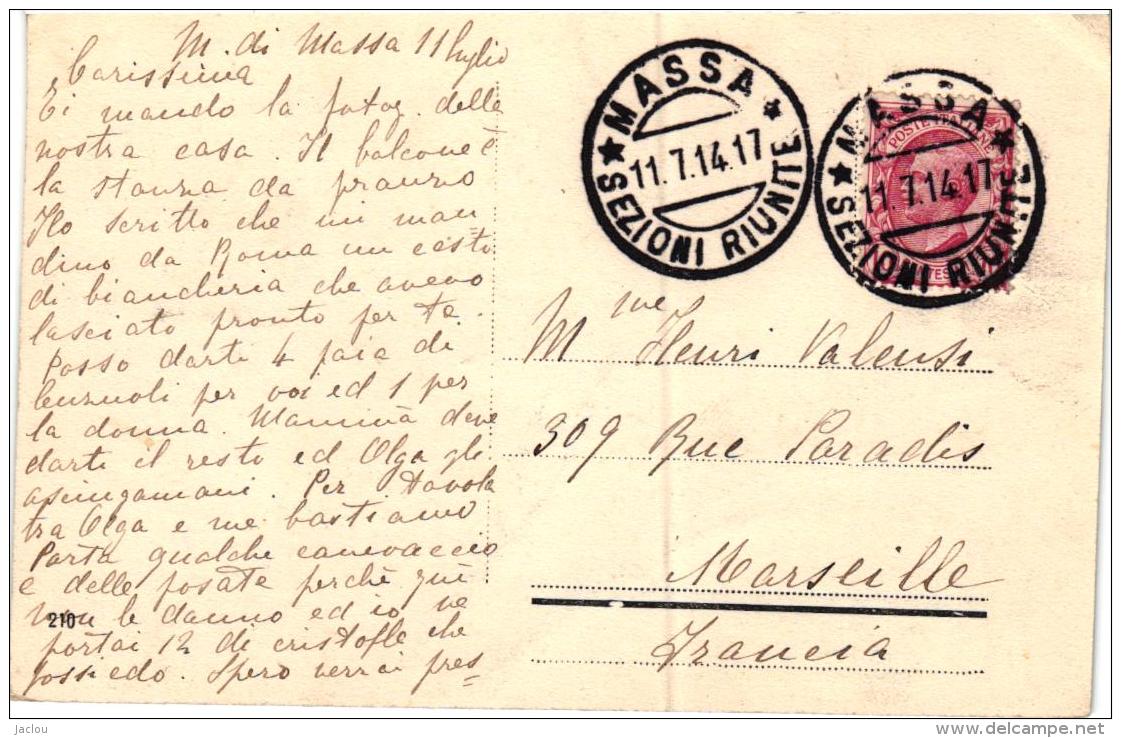 M. di Massa 11 luglio
Carissima
Ti mando la fotog. delle
nostra casa. Il balcone è
la stanza da pranzo
Ho scritto che mi man
dino da Roma un cesto
di biancheria che avevo
lasciato pronto per te.
Posso darti 4 paia di
lenzuoli per voi ed 1 per
la donna. Mammà deve
darti il resto ed Olga gli
asciugamani. Per tavola
tra Olga e me bastiamo
Porta qualche canovaccio
e delle posate perchè quì
non le danno ed io ne
portai 12 di cristofle che
possiedo. Spero verrai pres=
210
MASSA
11.7.14.17
SEZIONI RIUNITE
MASSA
11.7.14.17
SEZIONI RIUNITE
POSTE ITALIANE
Mme Henri Valensi
309 Rue Paradis
Marseille
Francia
jaclou
www.delcampe.net